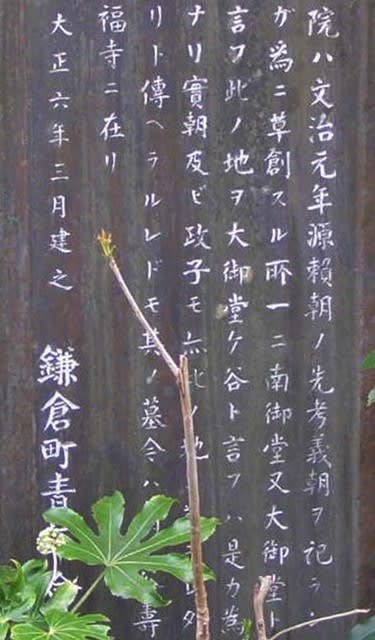 院ハ文治元年源頼朝ノ先考義朝ヲ祀ラン
ガ為ニ草創スル所一ニ南御堂又大御堂ト
言フ此ノ地ヲ大御堂ケ谷ト言フハ是カ為
ナリ實朝及ビ政子モ亦此ノ地
リト傳ヘラルレドモ其ノ墓今ハ 壽
福寺ニ在リ
大正六年三月建之 鎌倉町青